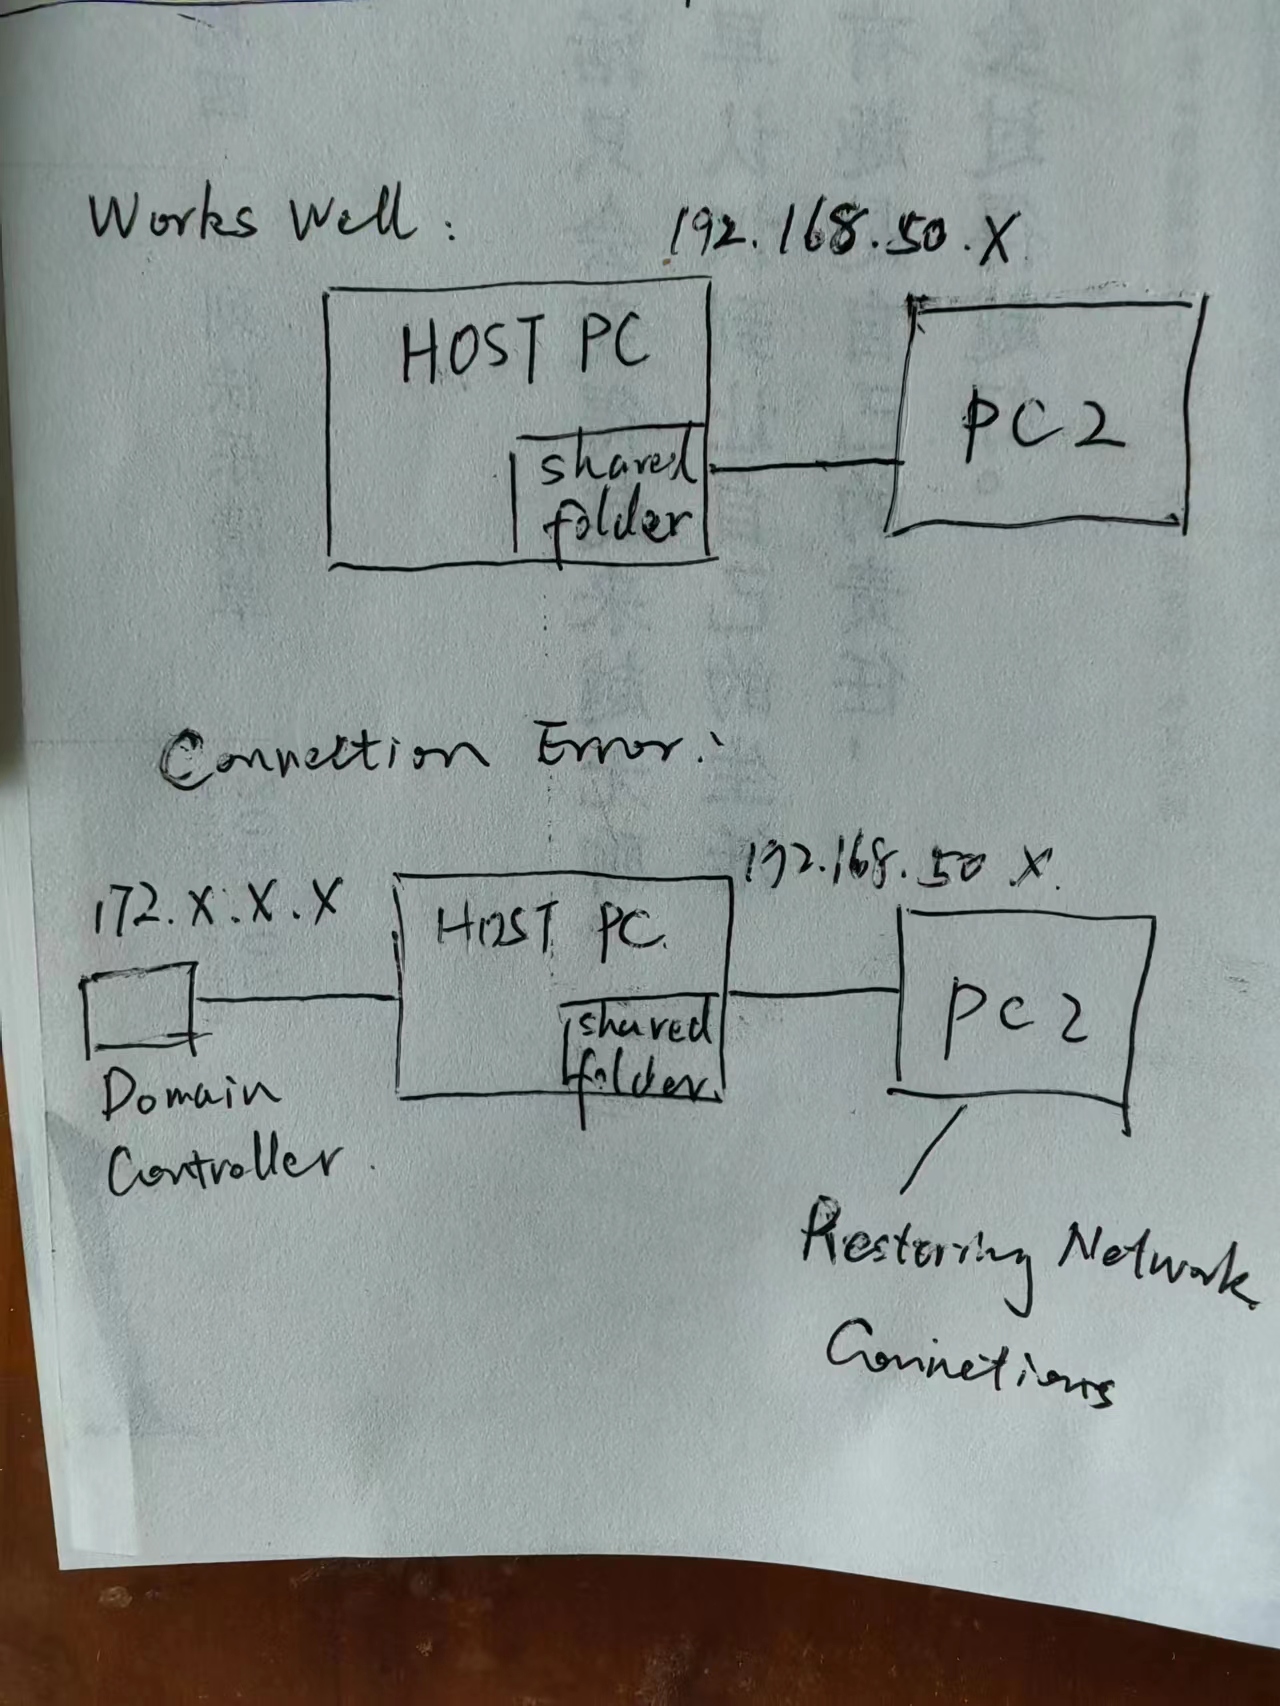 Works Well:
192.168.50.X
HOST PC
shared
folder
PC2
Connection Error:
172.X.X.X
192.168.50.X.
HOST PC.
shared
folder.
PC2
Domain
Controller.
Restoring Network
Connections